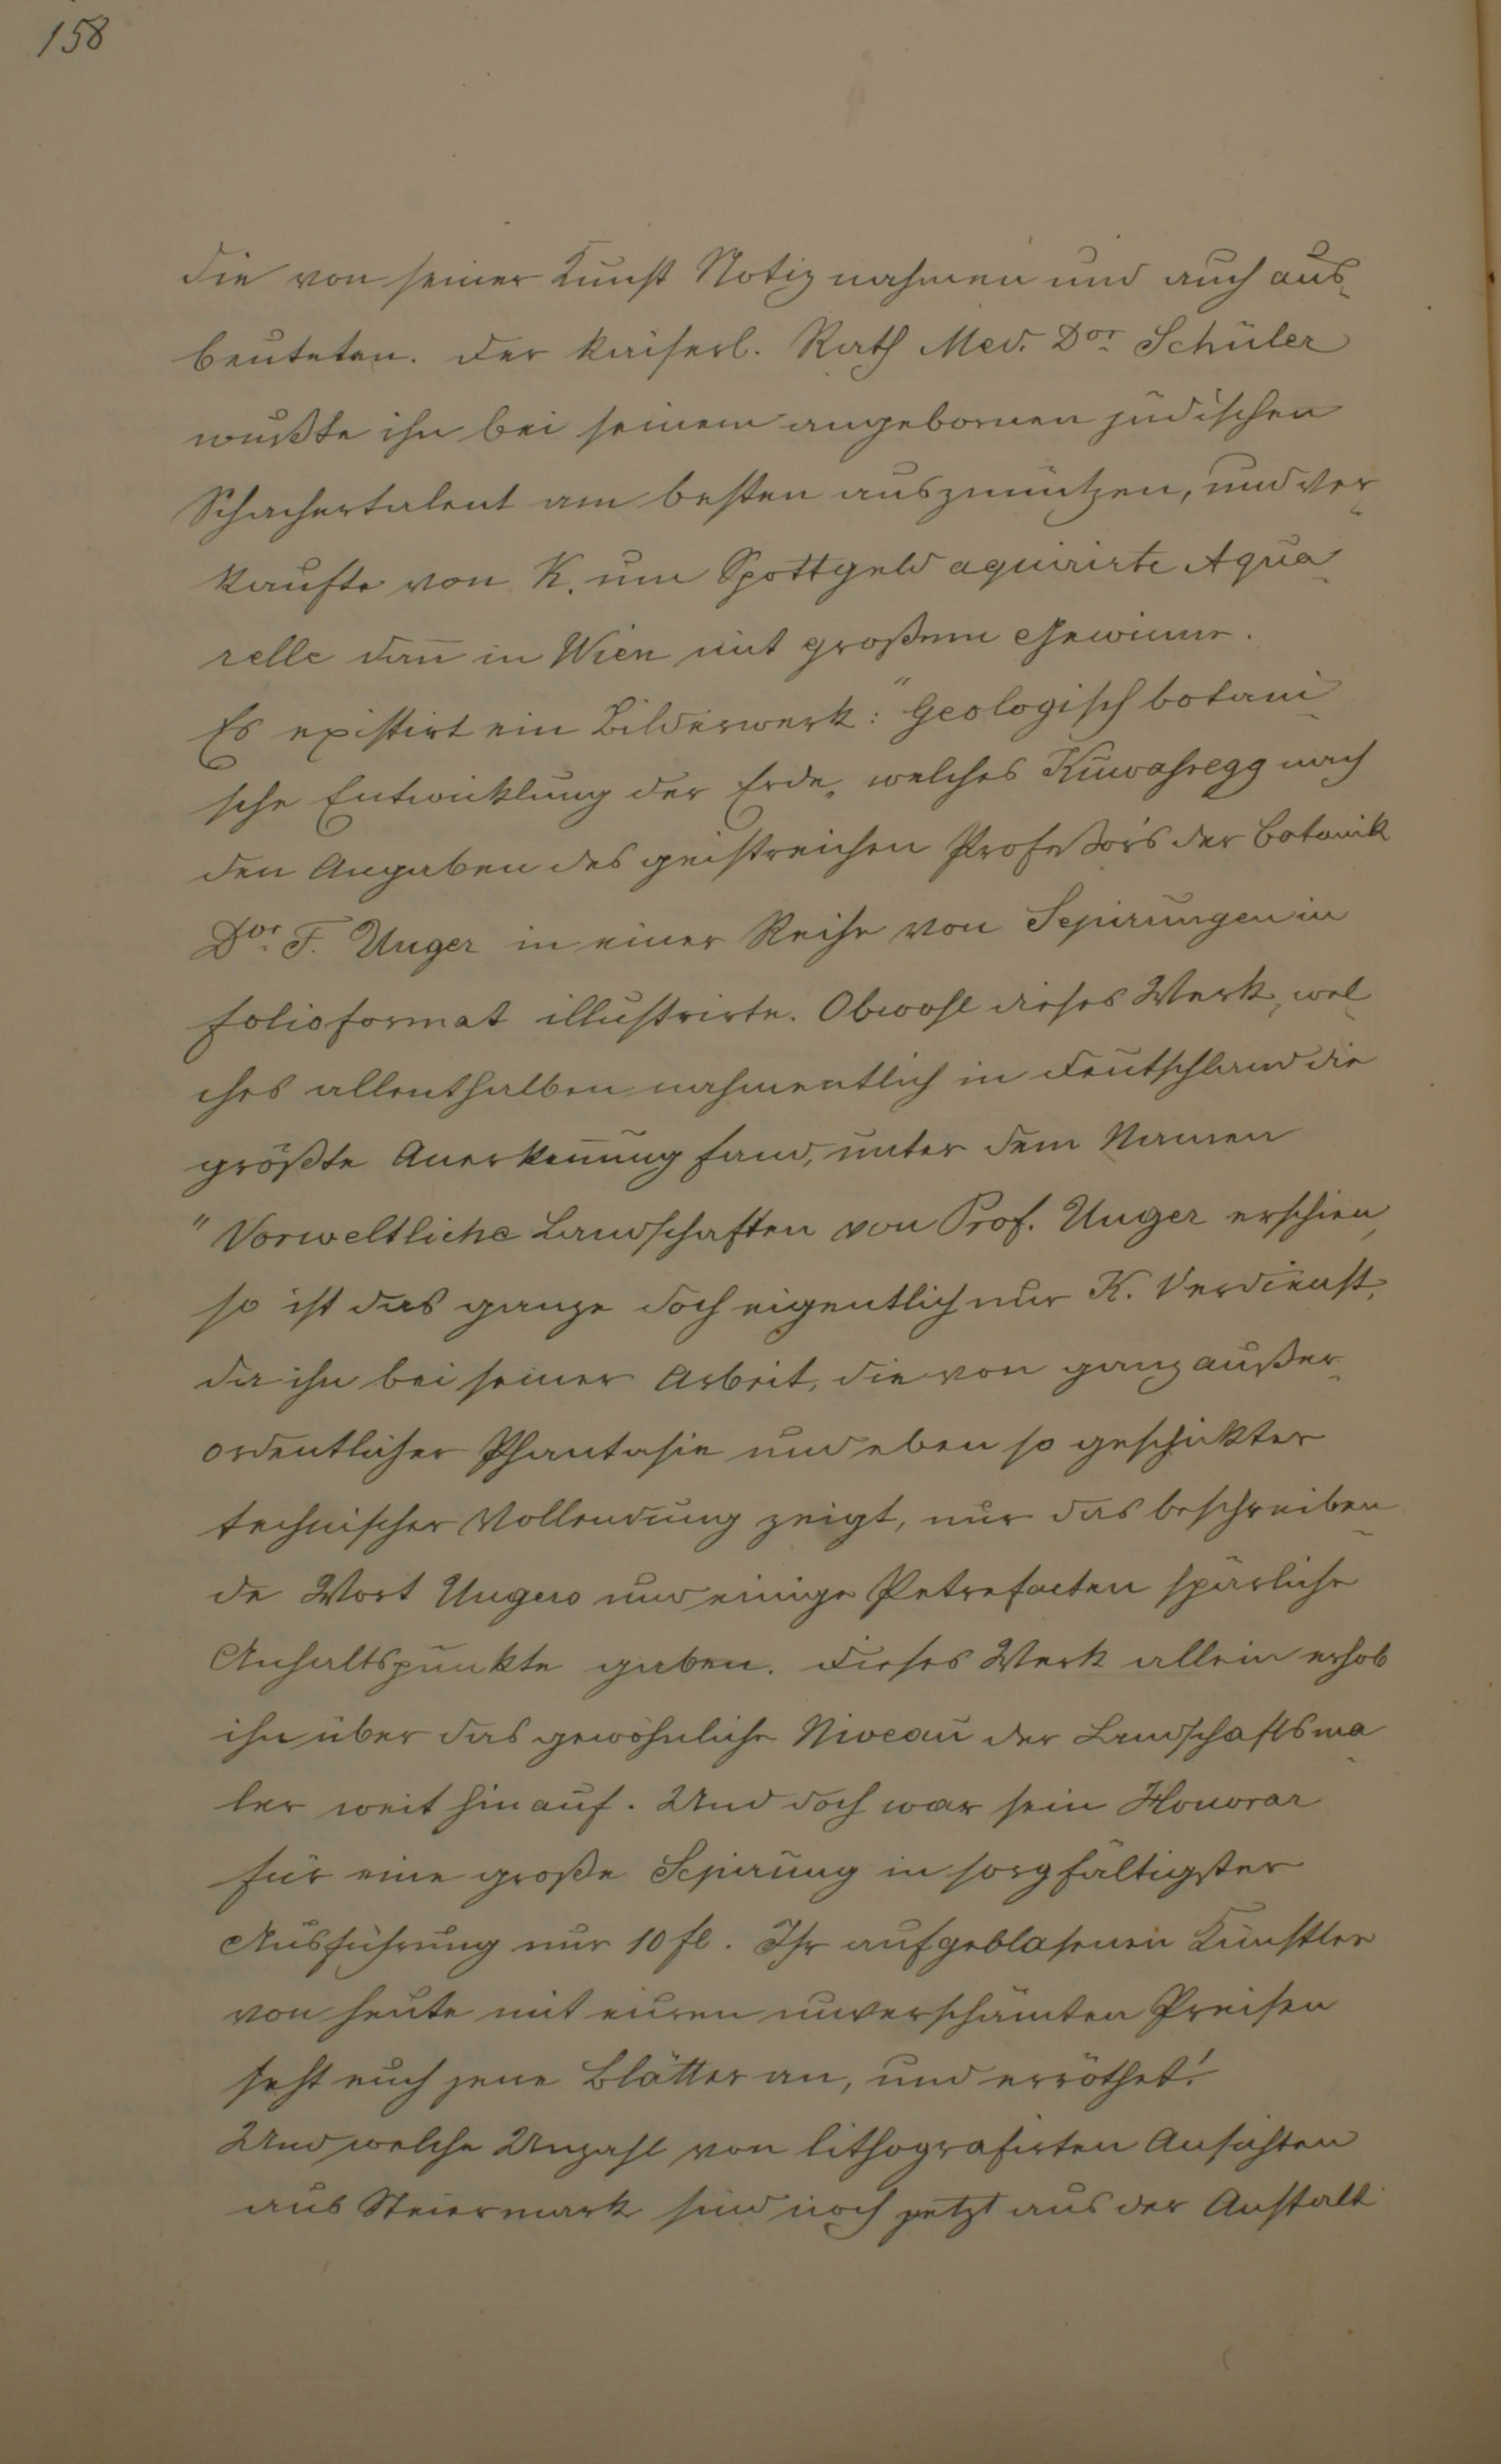 158
die von seiner Kunst Notiz nahmen und auch aus-
beuteten. Der kaiserl. Rath Med. Dor Schüler
wußte ihn bei seinem angebornen jüdischen
Schachertalent am besten auszunützen, und ver-
kaufte von K. um Spottgeld aquirirte Aqua-
relle dan̄ in Wien mit großem Gewinne.
Es existirt ein Bilderwerk: "Geologisch botani-
sche Entwicklung der Erde„ welches Kuwahsegg nach
den Angaben des geistreichen Profeßors der Botanik
Dor F. Unger in einer Reihe von Sepirungen in
Folioformat illustrirte. Obwohl dieses Werk, wel-
ches allenthalben nahmentlich in Deutschland die
größte Anerken̄ung fand, unter dem Namen
"Vorweltliche Landschaften von Prof. Unger erschien,
so ist das ganze doch eigentlich nur K. Verdienst,
da ihn bei seiner Arbeit, die von ganz außer-
ordentlicher Phantasie und eben so geschickter
technischer Vollendung zeigt, nur das beschreiben-
de Wort Ungers und einige Petrefacten spärliche
Anhaltspunkte gaben. Dieses Werk allein erhob
ihn über das gewöhnliche Niveau der Landschaftsma-
ler weit hinauf. Und doch war sein Honorar
für eine große Sepirung in sorgfältigster
Ausführung nur 10 fl. Ihr aufgeblasenen Künstler
von heute mit euren unverschämten Preisen
seht euch jene Blätter an, und erröthet!
Und welche Unzahl von lithografirten Ansichten
aus Steiermark sind noch jetzt aus der Anstalt